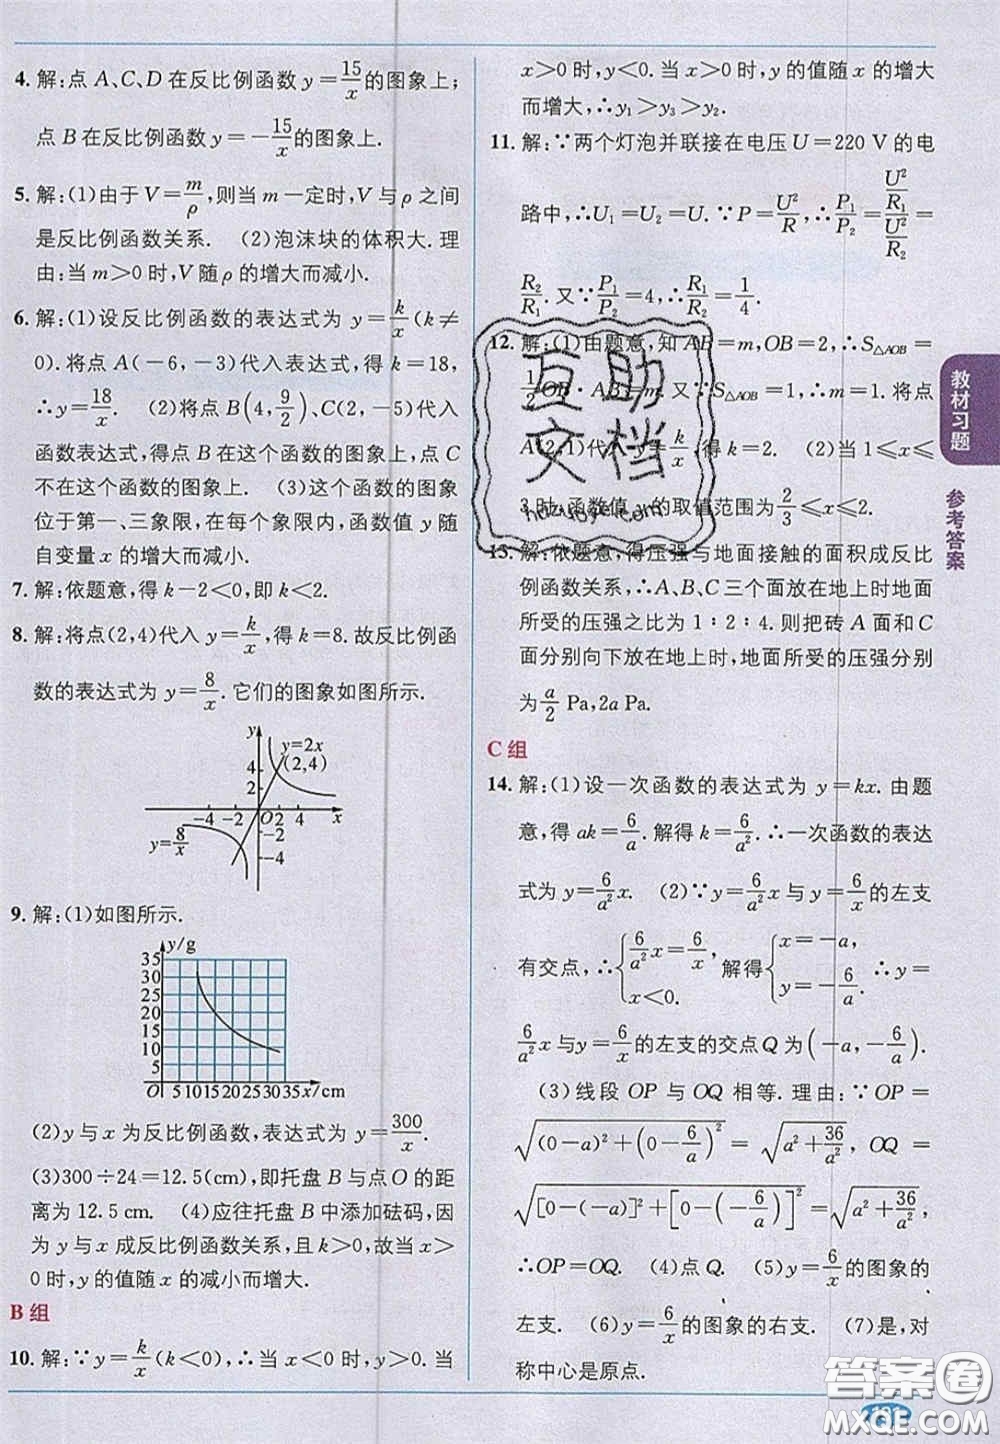 4. 解:点 A、C、D 在反比例函数 y=15/x 的图象上;
点 B 在反比例函数 y=-15/x 的图象上.
5. 解:(1)由于 V=m/ρ,则当 m 一定时,V 与 ρ 之间
是反比例函数关系. (2)泡沫块的体积大. 理
由:当 m>0 时,V 随 ρ 的增大而减小.
6. 解:(1)设反比例函数的表达式为 y=k/x(k≠
0). 将点 A(-6,-3)代入表达式,得 k=18,
∴y=18/x. (2)将点 B(4,9/2),C(2,-5)代入
函数表达式,得点 B 在这个函数的图象上,点 C
不在这个函数的图象上. (3)这个函数的图象
位于第一、三象限,在每个象限内,函数值 y 随
自变量 x 的增大而减小.
7. 解:依题意,得 k-2<0,即 k<2.
8. 解:将点(2,4)代入 y=k/x,得 k=8. 故反比例函
数的表达式为 y=8/x. 它们的图象如图所示.
y
y=2x
4
(2,4)
2
-4 -2 O 2 4 x
-2
y=8/x
-4
9. 解:(1)如图所示.
y/g
35
30
25
20
15
10
5
O 5 10 15 20 25 30 35 x/cm
(2)y 与 x 为反比例函数,表达式为 y=300/x.
(3)300÷24=12.5(cm),即托盘 B 与点 O 的距
离为 12.5 cm. (4)应往托盘 B 中添加砝码,因
为 y 与 x 成反比例函数关系,且 k>0,故当 x>
0 时,y 的值随 x 的减小而增大.
B 组
10. 解:∵y=k/x(k<0),∴当 x<0 时,y>0. 当
x>0 时,y<0. 当 x>0 时,y 的值随 x 的增大
而增大,∴y₁>y₃>y₂.
11. 解:∵两个灯泡并联接在电压 U=220 V 的电
路中,∴U₁=U₂=U. ∵P=U²/R,∴P₁/P₂=(U²/R₁)/(U²/R₂)=
R₂/R₁. 又∵P₁/P₂=4,∴R₂/R₁=1/4.
12. 解:(1)由题意,知 AB=m,OB=2,∴S△AOB=
1/2 OB·AB=m. 又∵S△AOB=1,∴m=1. 将点
A(2,1)代入 y=k/x,得 k=2. (2)当 1≤x≤
3 时,函数值 y 的取值范围为 2/3≤x≤2.
13. 解:依题意,得压强与地面接触的面积成反比
例函数关系,∴A、B、C 三个面放在地上时地面
所受的压强之比为 1∶2∶4. 则把砖 A 面和 C
面分别向下放在地上时,地面所受的压强分别
为 a/2 Pa,2a Pa.
C 组
14. 解:(1)设一次函数的表达式为 y=kx. 由题
意,得 ak=6/a. 解得 k=6/a². ∴一次函数的表达
式为 y=6/a² x. (2)∵y=6/a² x 与 y=6/x 的左支
有交点,∴{6/a² x=6/x, x<0. 解得{x=-a, y=-6/a. ∴y=
6/a² x 与 y=6/x 的左支的交点 Q 为(-a,-6/a).
(3)线段 OP 与 OQ 相等. 理由:∵OP=
√((0-a)²+(0-6/a)²)=√(a²+36/a²),OQ=
√([0-(-a)]²+[0-(-6/a)]²)=√(a²+36/a²),
∴OP=OQ. (4)点 Q. (5)y=6/x 的图象的
左支. (6)y=6/x 的图象的右支. (7)是,对
称中心是原点.
教材习题
参考答案
互助
文档
huzuoye.com
答案圈
MXQE.COM